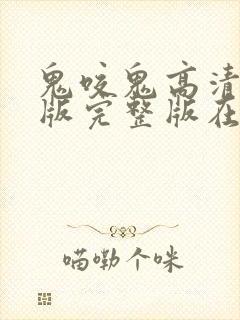 鬼咬鬼高清
版完整版在
喵嘞个咪